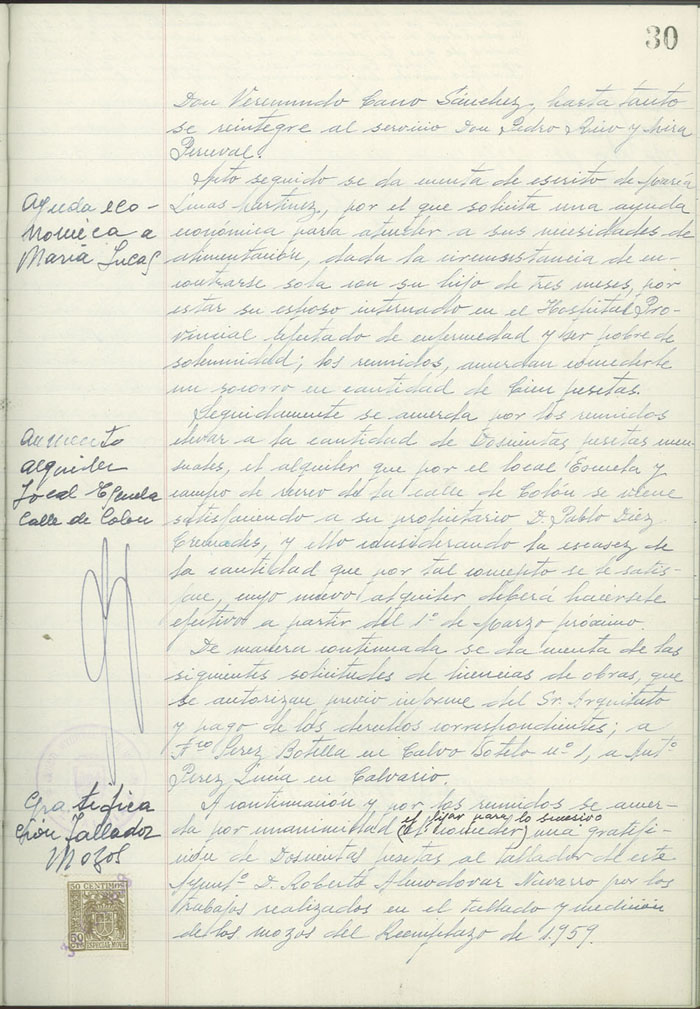 30
Don Veremundo Cano Sánchez, hasta tanto
se reintegre al servicio Don Pedro Rico y Mira
Perceval.
Ayuda eco-
nómica a
María Lucas
Acto seguido se da cuenta de escrito de María
Lucas Martinez, por el que solicita una ayuda
económica para atender a sus necesidades de
alimentación, dada la circunstancia de en-
contrarse sola con su hijo de tres meses, por
estar su esposo internado en el Hospital Pro-
vincial afectado de enfermedad y ser pobre de
solemnidad; los reunidos, acuerdan concederle
un socorro en cantidad de Cien pesetas.
Aumento
alquiler
local Escuela
Calle de Colón
Seguidamente se acuerda por los reunidos
elevar a la cantidad de Doscientas pesetas men-
suales, el alquiler que por el local Escuela y
campo de recreo de la calle de Colón se viene
satisfaciendo a su propietario D. Pablo Diez
Cremades, y ello considerando la escasez de
la cantidad que por tal concepto se le satis-
face, cuyo nuevo alquiler deberá hacersele
efectivo a partir del 1º de Marzo próximo.
De manera continuada se da cuenta de las
siguientes solicitudes de licencias de obras, que
se autorizan previo informe del Sr. Arquitecto
y pago de los derechos correspondientes; a
Fco Perez Botella en Calvo Sotelo nº 1, a Antº
Perez Lucas en Calvario.
Gratifica
ción Tallador
Mozos
A continuación y por los reunidos se acuer-
el fijar para lo sucesivo
da por unanimidad (el conceder) una gratifi-
ción de Doscientas pesetas al tallador de este
Ayuntº D. Roberto Almodovar Navarro por los
trabajos realizados en el tallado y medición
de los mozos del Reemplazo de 1.959.
50 CENTIMOS
50
ESPECIAL MOVIL